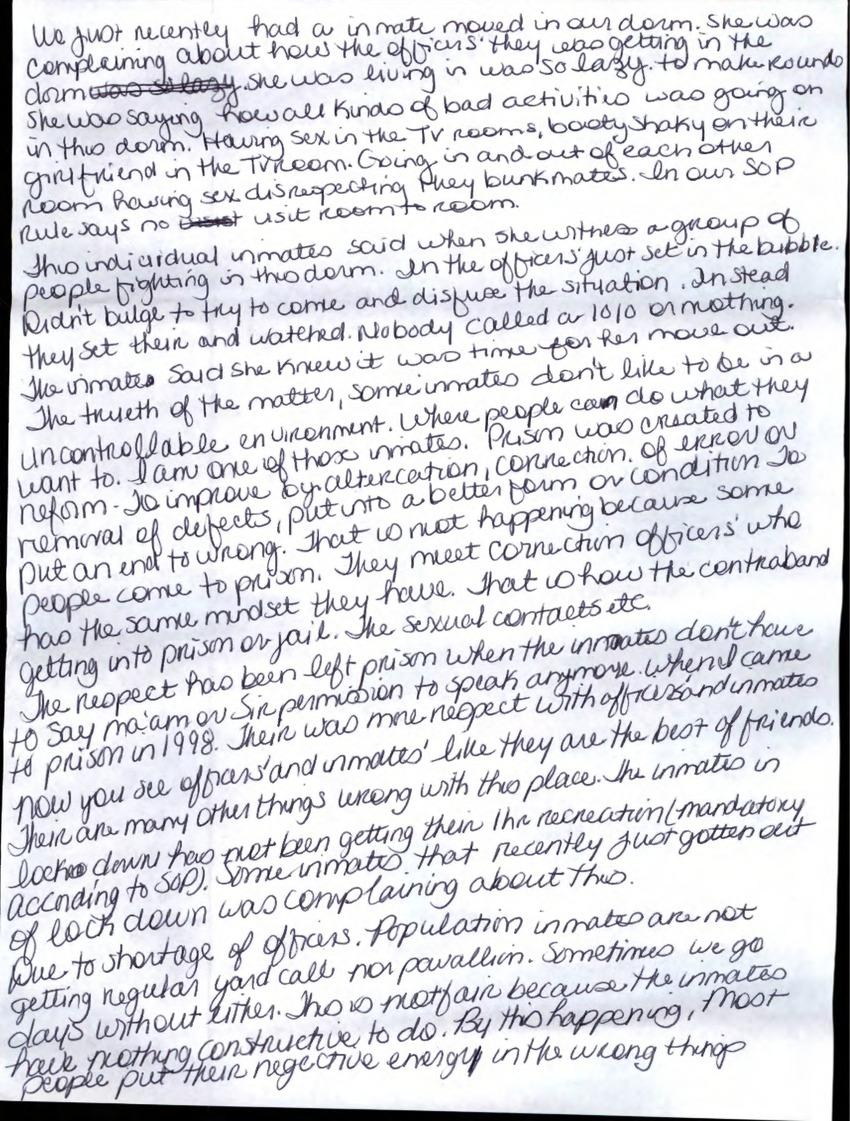 We just recently had a inmate moved in our dorm. She was
complaining about how the officers' they was getting in the
dorm was so lazy. she was living in was so lazy. to make rounds
She was saying how all kinds of bad activities was going on
in this dorm. Having sex in the TV rooms, booty shaky on their
girlfriend in the TV room. Going in and out of each other
room having sex disrespecting they bunkmates. In our SOP
rule says no visit room to room.
This individual inmates said when she witness a group of
people fighting in this dorm. In the officers' just set in the bubble.
Didn't bulge to try to come and disfuse the situation. Instead
they set their and watched. Nobody called a 1010 or nothing.
The inmates said she knew it was time for her move out.
The trueth of the matter, some inmates don't like to be in a
uncontrollable environment. Where people can do what they
want to. I am one of those inmates. Prison was created to
reform - To improve by altercation, correction. of error or
removal of defects, put into a better form or condition To
put an end to wrong. That is not happening because some
people come to prison. They meet correction officers' who
has the same mindset they have. That is how the contraband
getting into prison or jail. The sexual contacts etc.
The respect has been left prison when the inmates don't have
to say ma'am or Sir permission to speak anymore. When I came
to prison in 1998. Their was more respect with officers' and inmates
now you see officers' and inmates' like they are the best of friends.
Their are many other things wrong with this place. The inmates in
locked down has not been getting their 1hr recreation (mandatory
according to SOP). Some inmates that recently just gotten out
of lock down was complaining about this.
Due to shortage of officers. Population inmates are not
getting regular yard call nor pavallion. Sometimes we go
days without either. This is not fair because the inmates
have nothing constructive to do. By this happening, Most
people put their negective energy in the wrong things